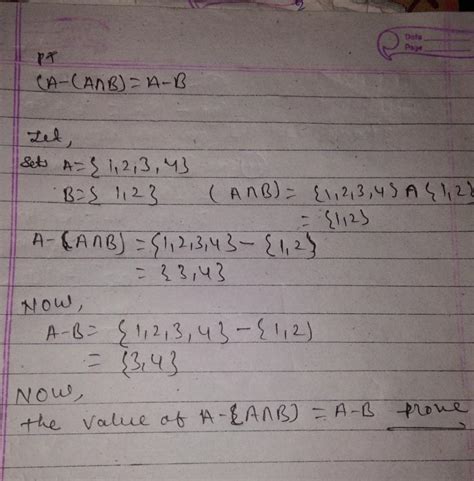 Date
Page
PT
(A-(A∩B)=A-B
Let,
Sets A={ 1,2,3,4}
B={ 1,2} (A∩B)= {1,2,3,4} A {1,2}
= {1,2}
A-(A∩B) = {1,2,3,4} - {1,2}
= {3,4}
NOW,
A-B= {1,2,3,4} - {1,2)
= {3,4}
NOW,
the value of A-(A∩B) = A-B prove